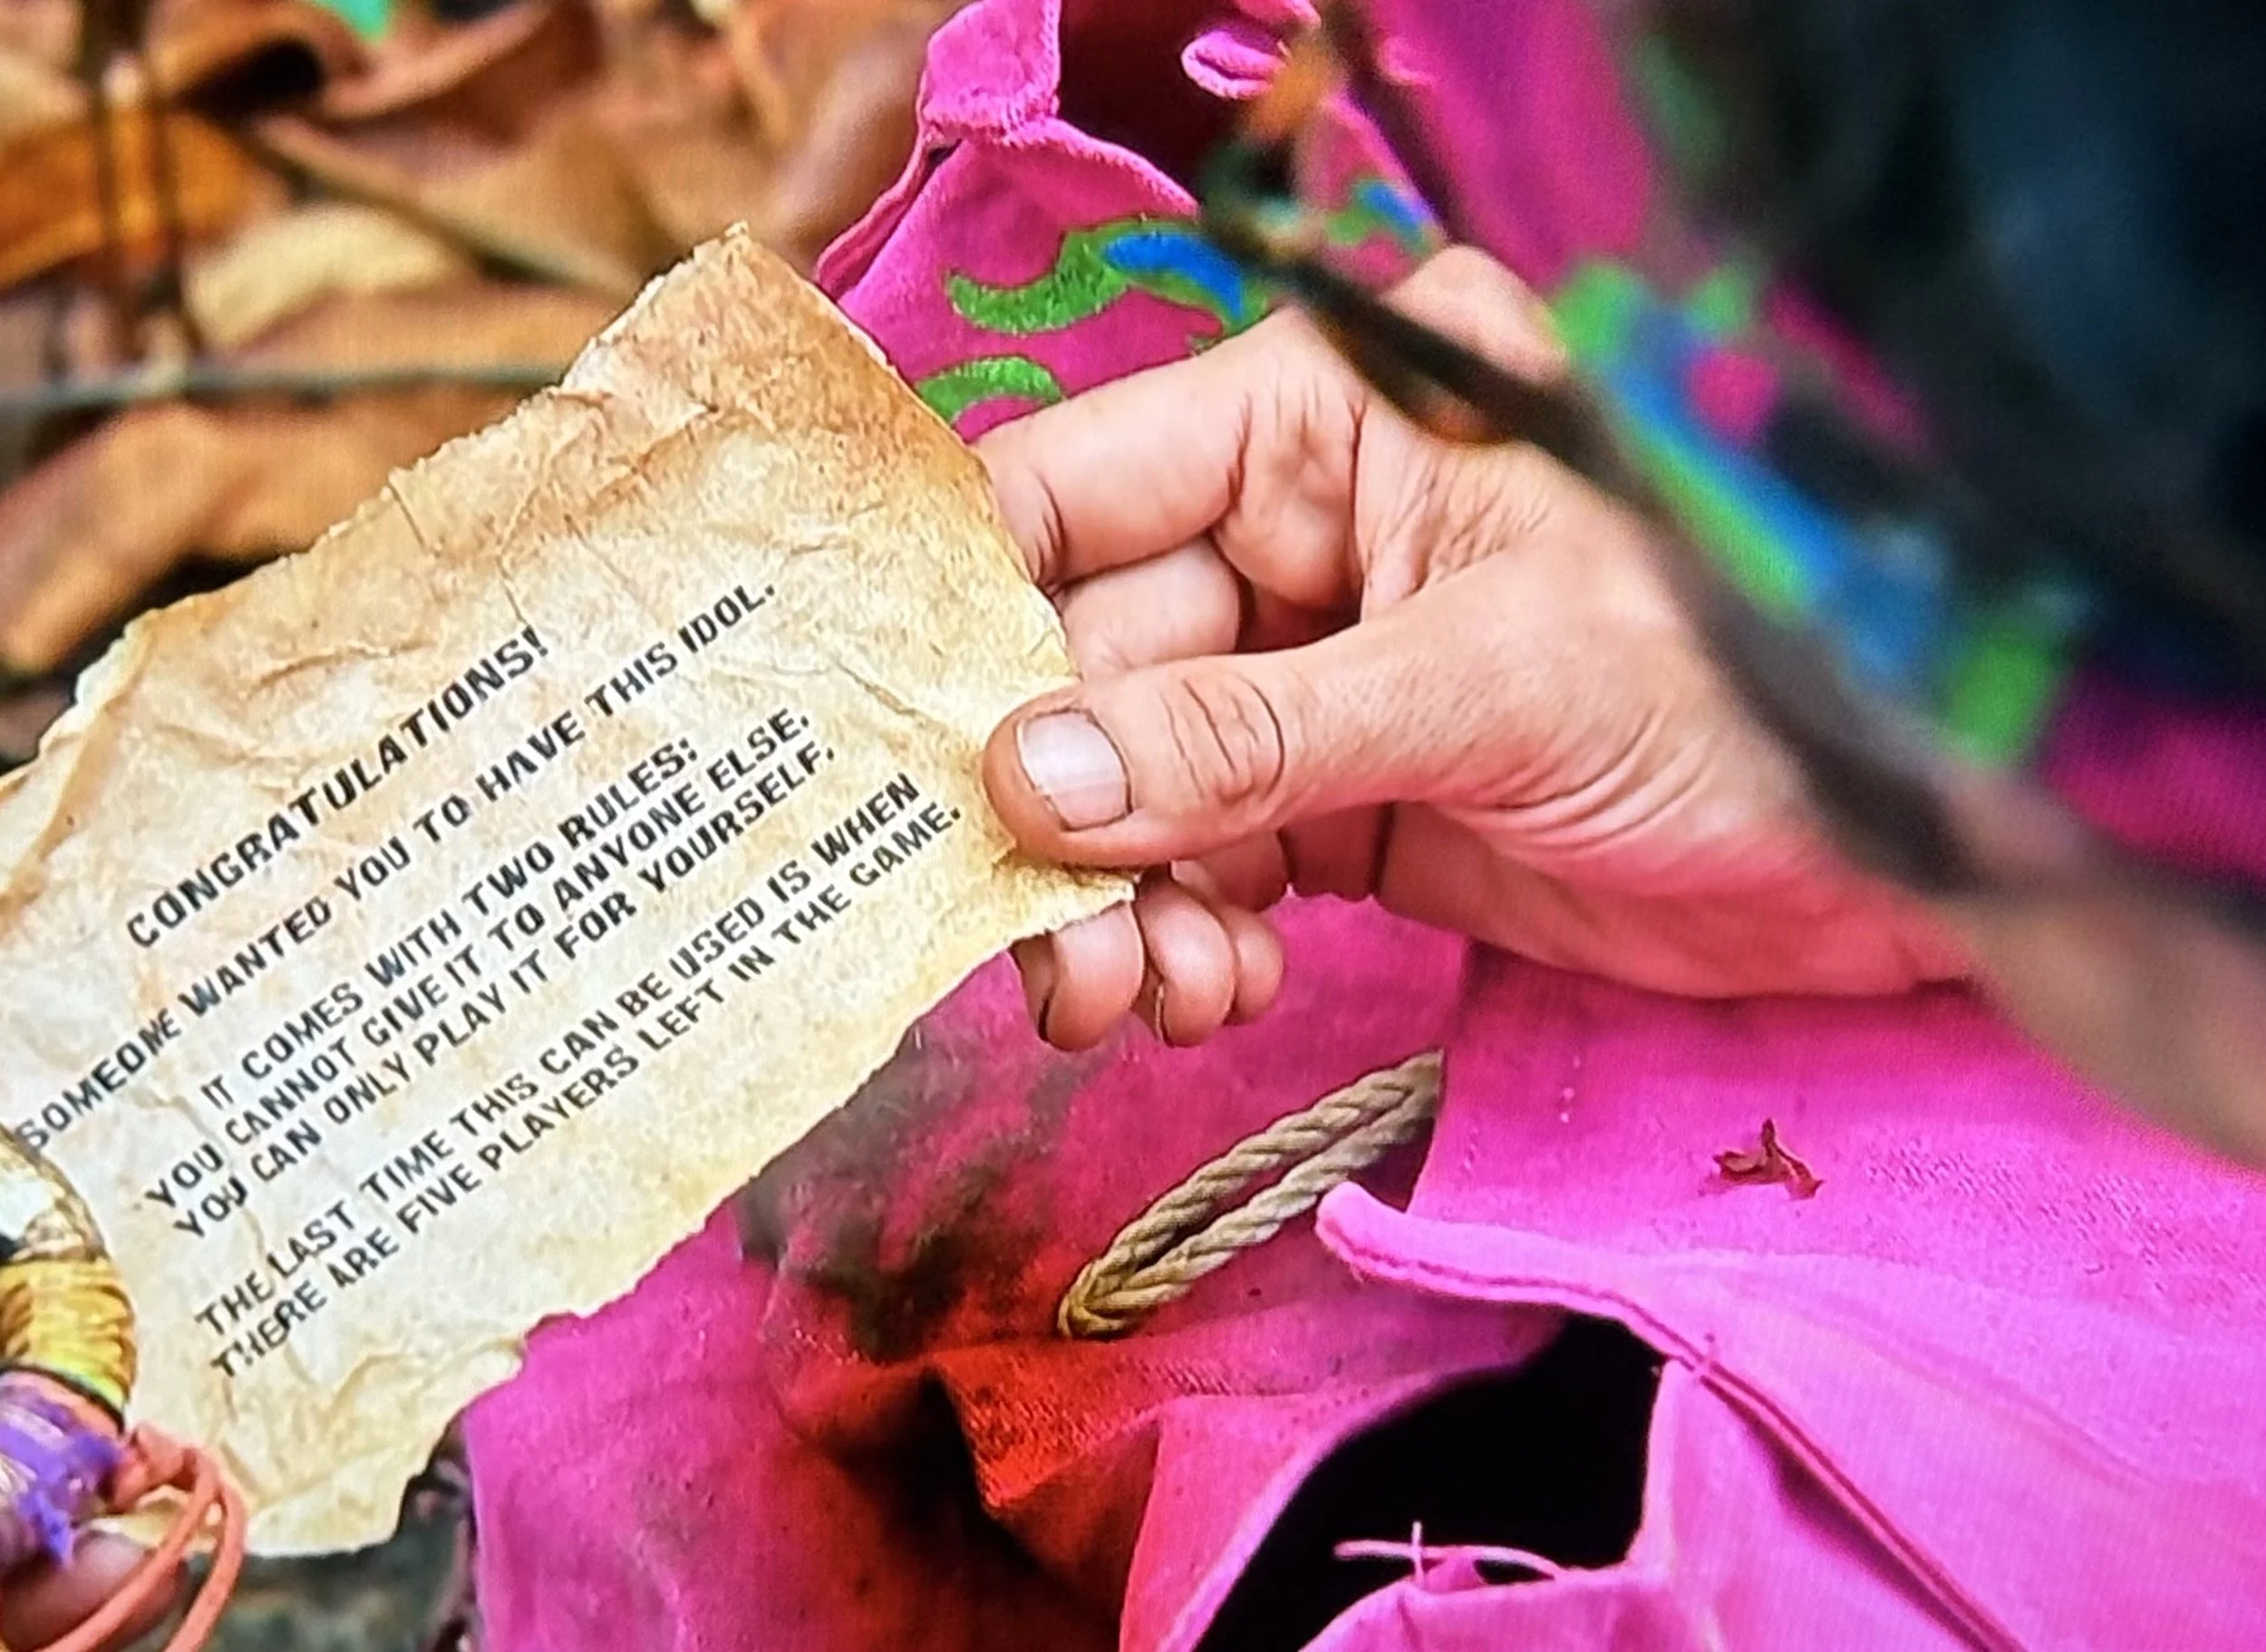 CONGRATULATIONS!
SOMEONE WANTED YOU TO HAVE THIS IDOL.
IT COMES WITH TWO RULES:
YOU CANNOT GIVE IT TO ANYONE ELSE.
YOU CAN ONLY PLAY IT FOR YOURSELF.
THE LAST TIME THIS CAN BE USED IS WHEN
THERE ARE FIVE PLAYERS LEFT IN THE GAME.